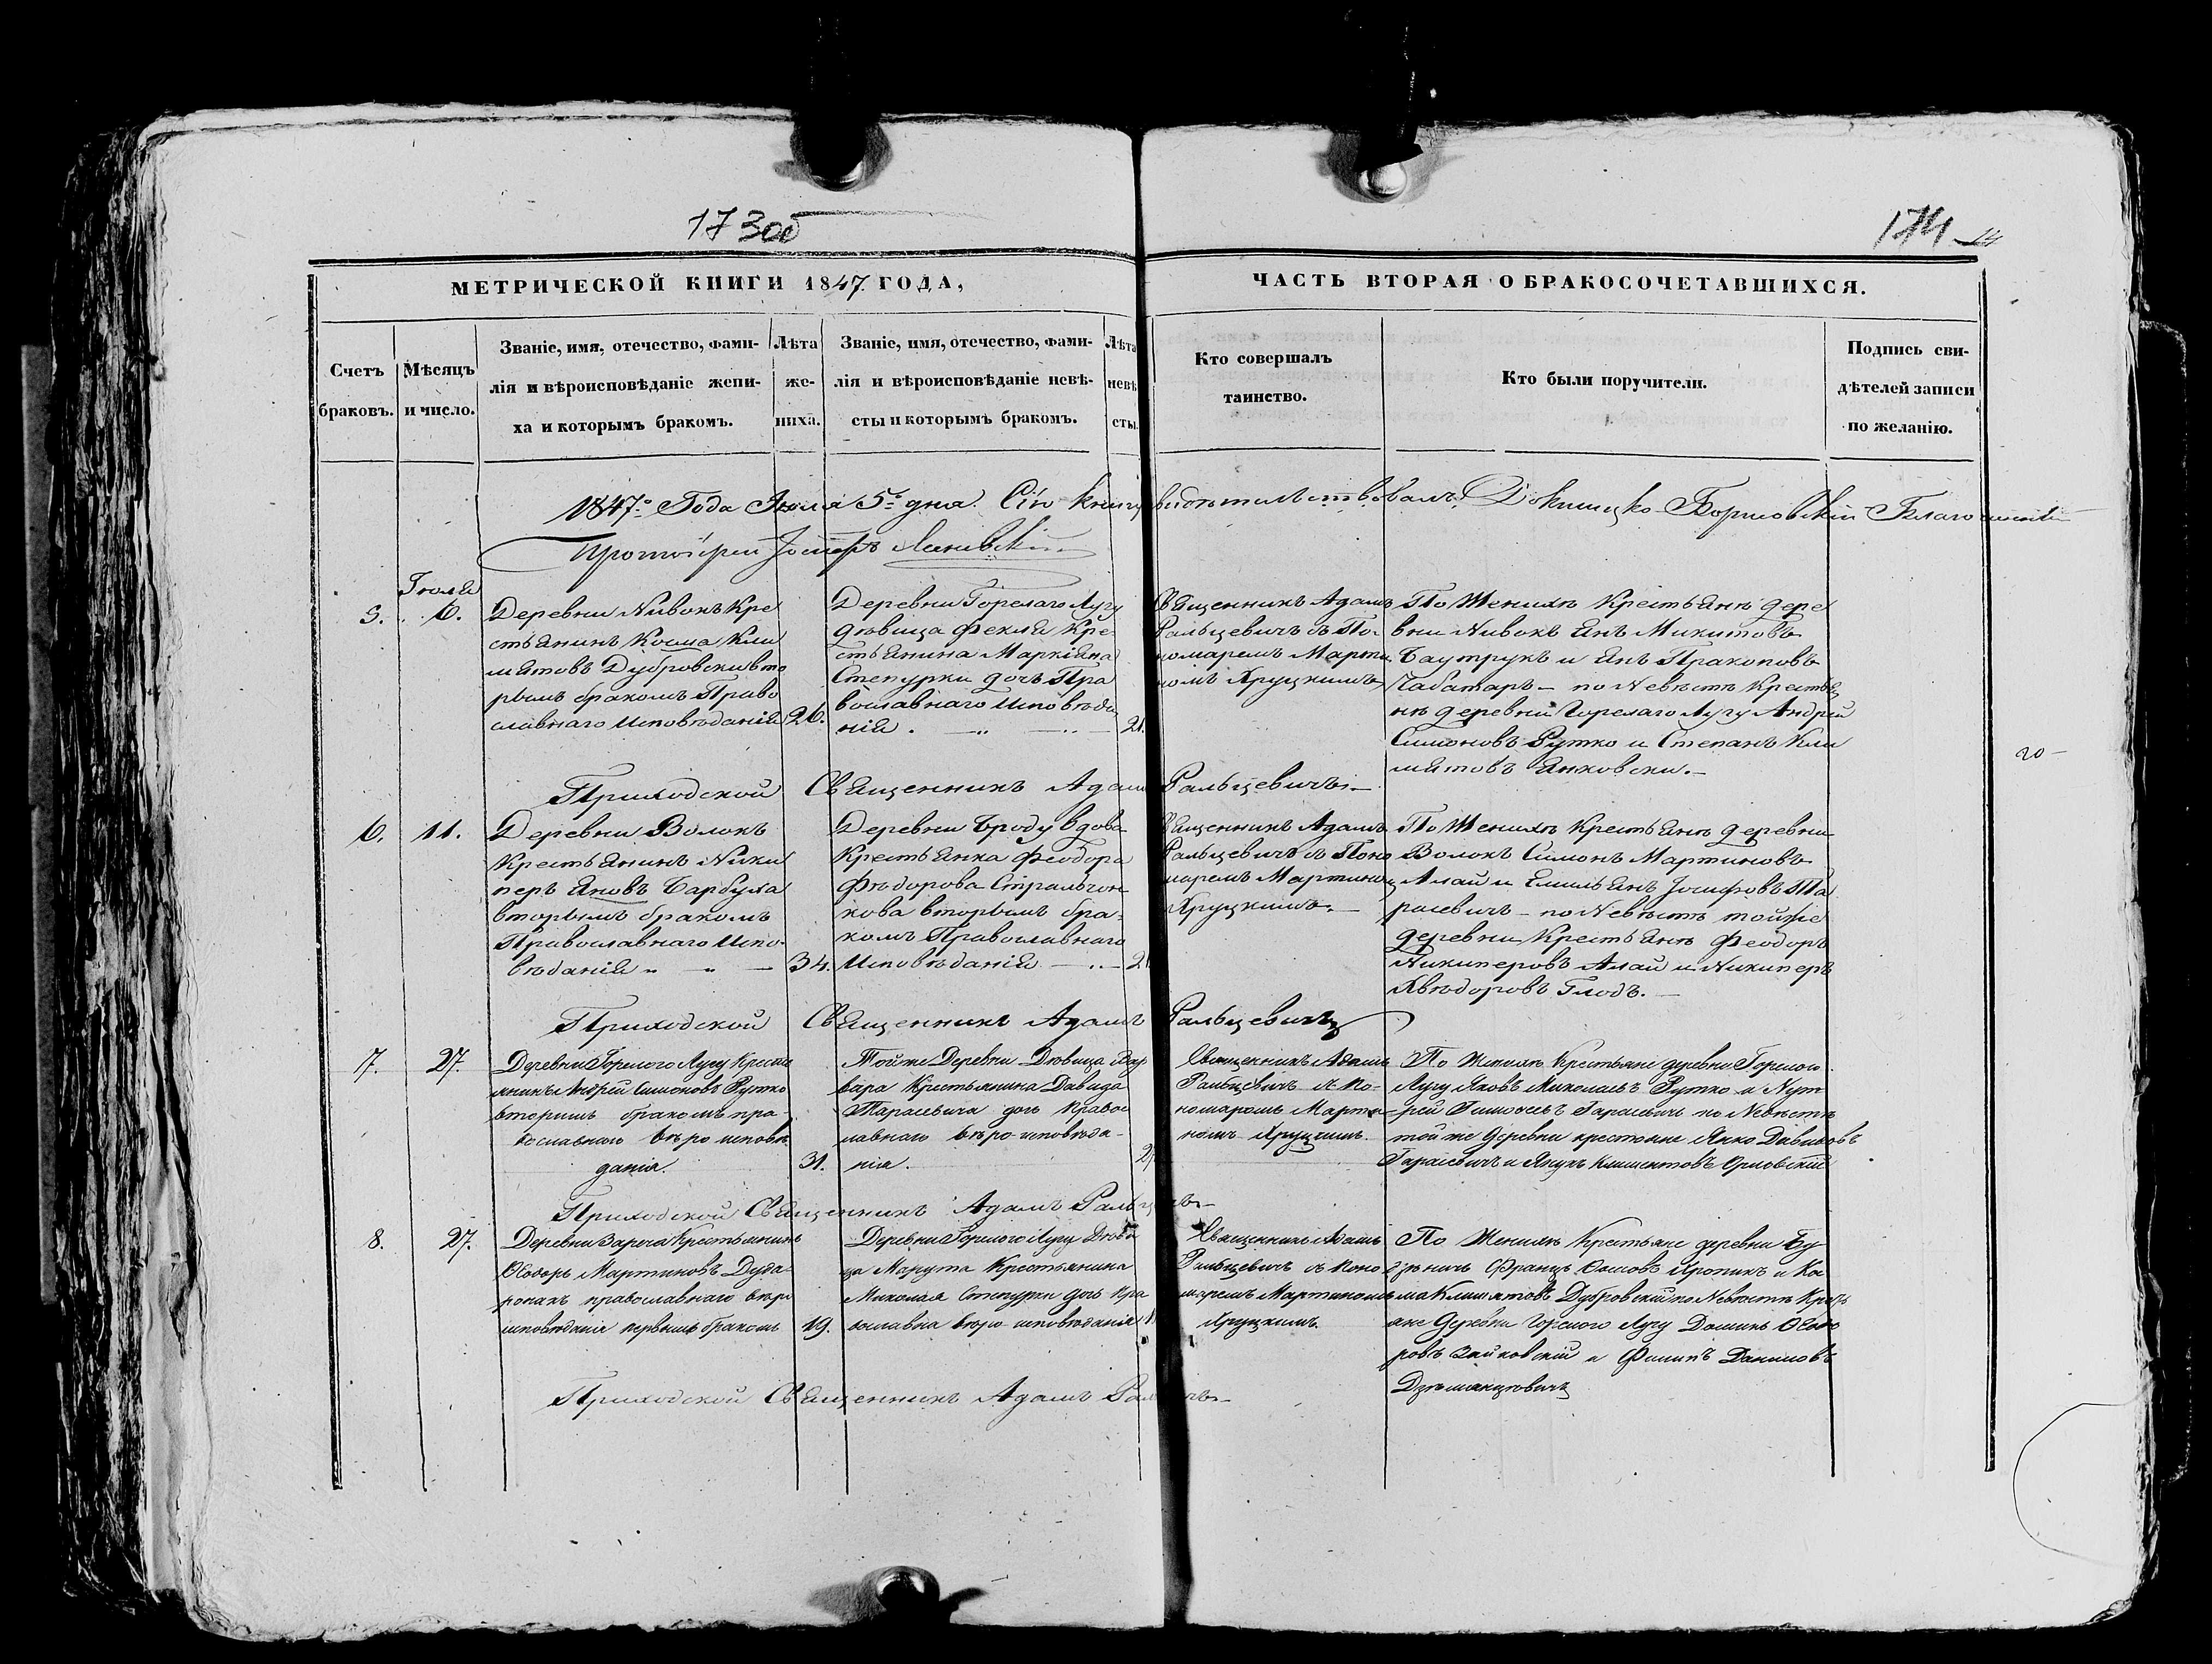 173об
174
14
МЕТРИЧЕСКОЙ КНИГИ 1847 ГОДА,
ЧАСТЬ ВТОРАЯ О БРАКОСОЧЕТАВШИХСЯ.
Счетъ
браковъ.
Мѣсяцъ
и число.
Званіе, имя, отечество, фами-
лія и вѣроисповѣданіе жени-
ха и которымъ бракомъ.
Лѣта
же-
ниха.
Званіе, имя, отечество, фами-
лія и вѣроисповѣданіе невѣ-
сты и которымъ бракомъ.
Лѣта
невѣ
сты.
Кто совершалъ
таинство.
Кто были поручители.
Подпись сви-
дѣтелей записи
по желанію.
1847го Года Іюля 5го дня. Сію книгу свидѣтельствовалъ Докшицко-Борисовскій Благочинный
Протоіерей
Іюля
5. 6.
Деревни Нивокъ Кре
стьянинъ Косма Кли
мятовъ Дубровски вто
рымъ бракомъ Право
славнаго Исповѣданія 26.
Деревни Горелаго Лугу
дѣвица Фекля Кре-
стьянина Маркіяна
Степурки дочь Пра
вославнаго Исповѣда
нія. 21.
Священникъ Адамъ
Ральцевичъ съ По-
номаремъ Марти
номъ Хруцкимъ
По Женихѣ Крестьянѣ дере
вни Нивокъ Янъ Микитовъ
Баутрукъ и Янъ Пракоповъ
Чабатаръ - по Невѣстѣ Крестья
нѣ деревни Горелаго Лугу Андрей
Симоновъ Рутко и Степанъ Кли
мятовъ Янковски.
20
Приходской Священникъ Адамъ Ральцевичъ
6. 11.
Деревни Волокъ
Крестьянинъ Ники
перъ Яновъ Барбуха
вторымъ бракомъ
Православнаго Испо-
вѣданія 34.
Деревни Броду вдова
Крестьянка Феодора
Фѣдорова Стральчон
кова вторымъ бра-
комъ Православнаго
Исповѣданія
Священникъ Адамъ
Ральцевичъ съ Поно
маремъ Мартином
Хруцкимъ.
По Женихѣ Крестьянѣ деревни
Волокъ Симонъ Мартиновъ
Алай и Емильянъ Іосифовъ Та
расевичъ - по Невѣстѣ тойже
деревни Крестьянѣ Феодоръ
Никиперовъ Алай и Никиперъ
Хвѣдоровъ Глодъ.
Приходской Священникъ Адамъ Ральцевичъ
7. 27.
Деревни Горелого Лугу Кресть
янинъ Андрей Симоновъ Рутко
вторимъ бракомъ пра-
вославнаго вѣро исповѣ
данія. 31.
Той же Деревни Дѣвица Вар
вара Крестьянина Давида
Тарасевича дочь Правос
лавнаго вѣро исповѣда-
нія.
Священникъ Адамъ
Ральцевичъ съ По-
номаромъ Марти-
номъ Хруцкимъ.
По Женихѣ Крестьяне деревни Горелого
Лугу Яковъ Николаевъ Рутко и
Тарасевичъ по Невѣстѣ
той же деревни крестьяне Янко Давидовъ
Тарасевичъ и Янукъ Климентовъ Орловскій
Приходской Священникъ Адамъ Ральц чъ
8. 27.
Деревни Зареча Крестьянинъ
Ѳеодоръ Мартиновъ Дуда-
ронакъ православнаго вѣро
исповѣданіе первимъ бракомъ 19.
Деревни Горелого Лугу Дѣви
ца Марута Крестьянина
Миколая Степурки дочь Пра
вославна вѣро исповѣданіе
Священникъ Адамъ
Ральцевичъ съ Поно
маремъ Мартиномъ
Хруцкимъ.
По Женихѣ Крестьяне деревни
Францъ Хропикъ и Ко
ма Климятовъ Дубровскій по Невѣстѣ Кресть
яне Деревни Горелого Лугу Доминъ Ѳеодо
ровъ Зайковскій и Филипъ Даниловъ
Приходской Священникъ Адамъ Рал чъ